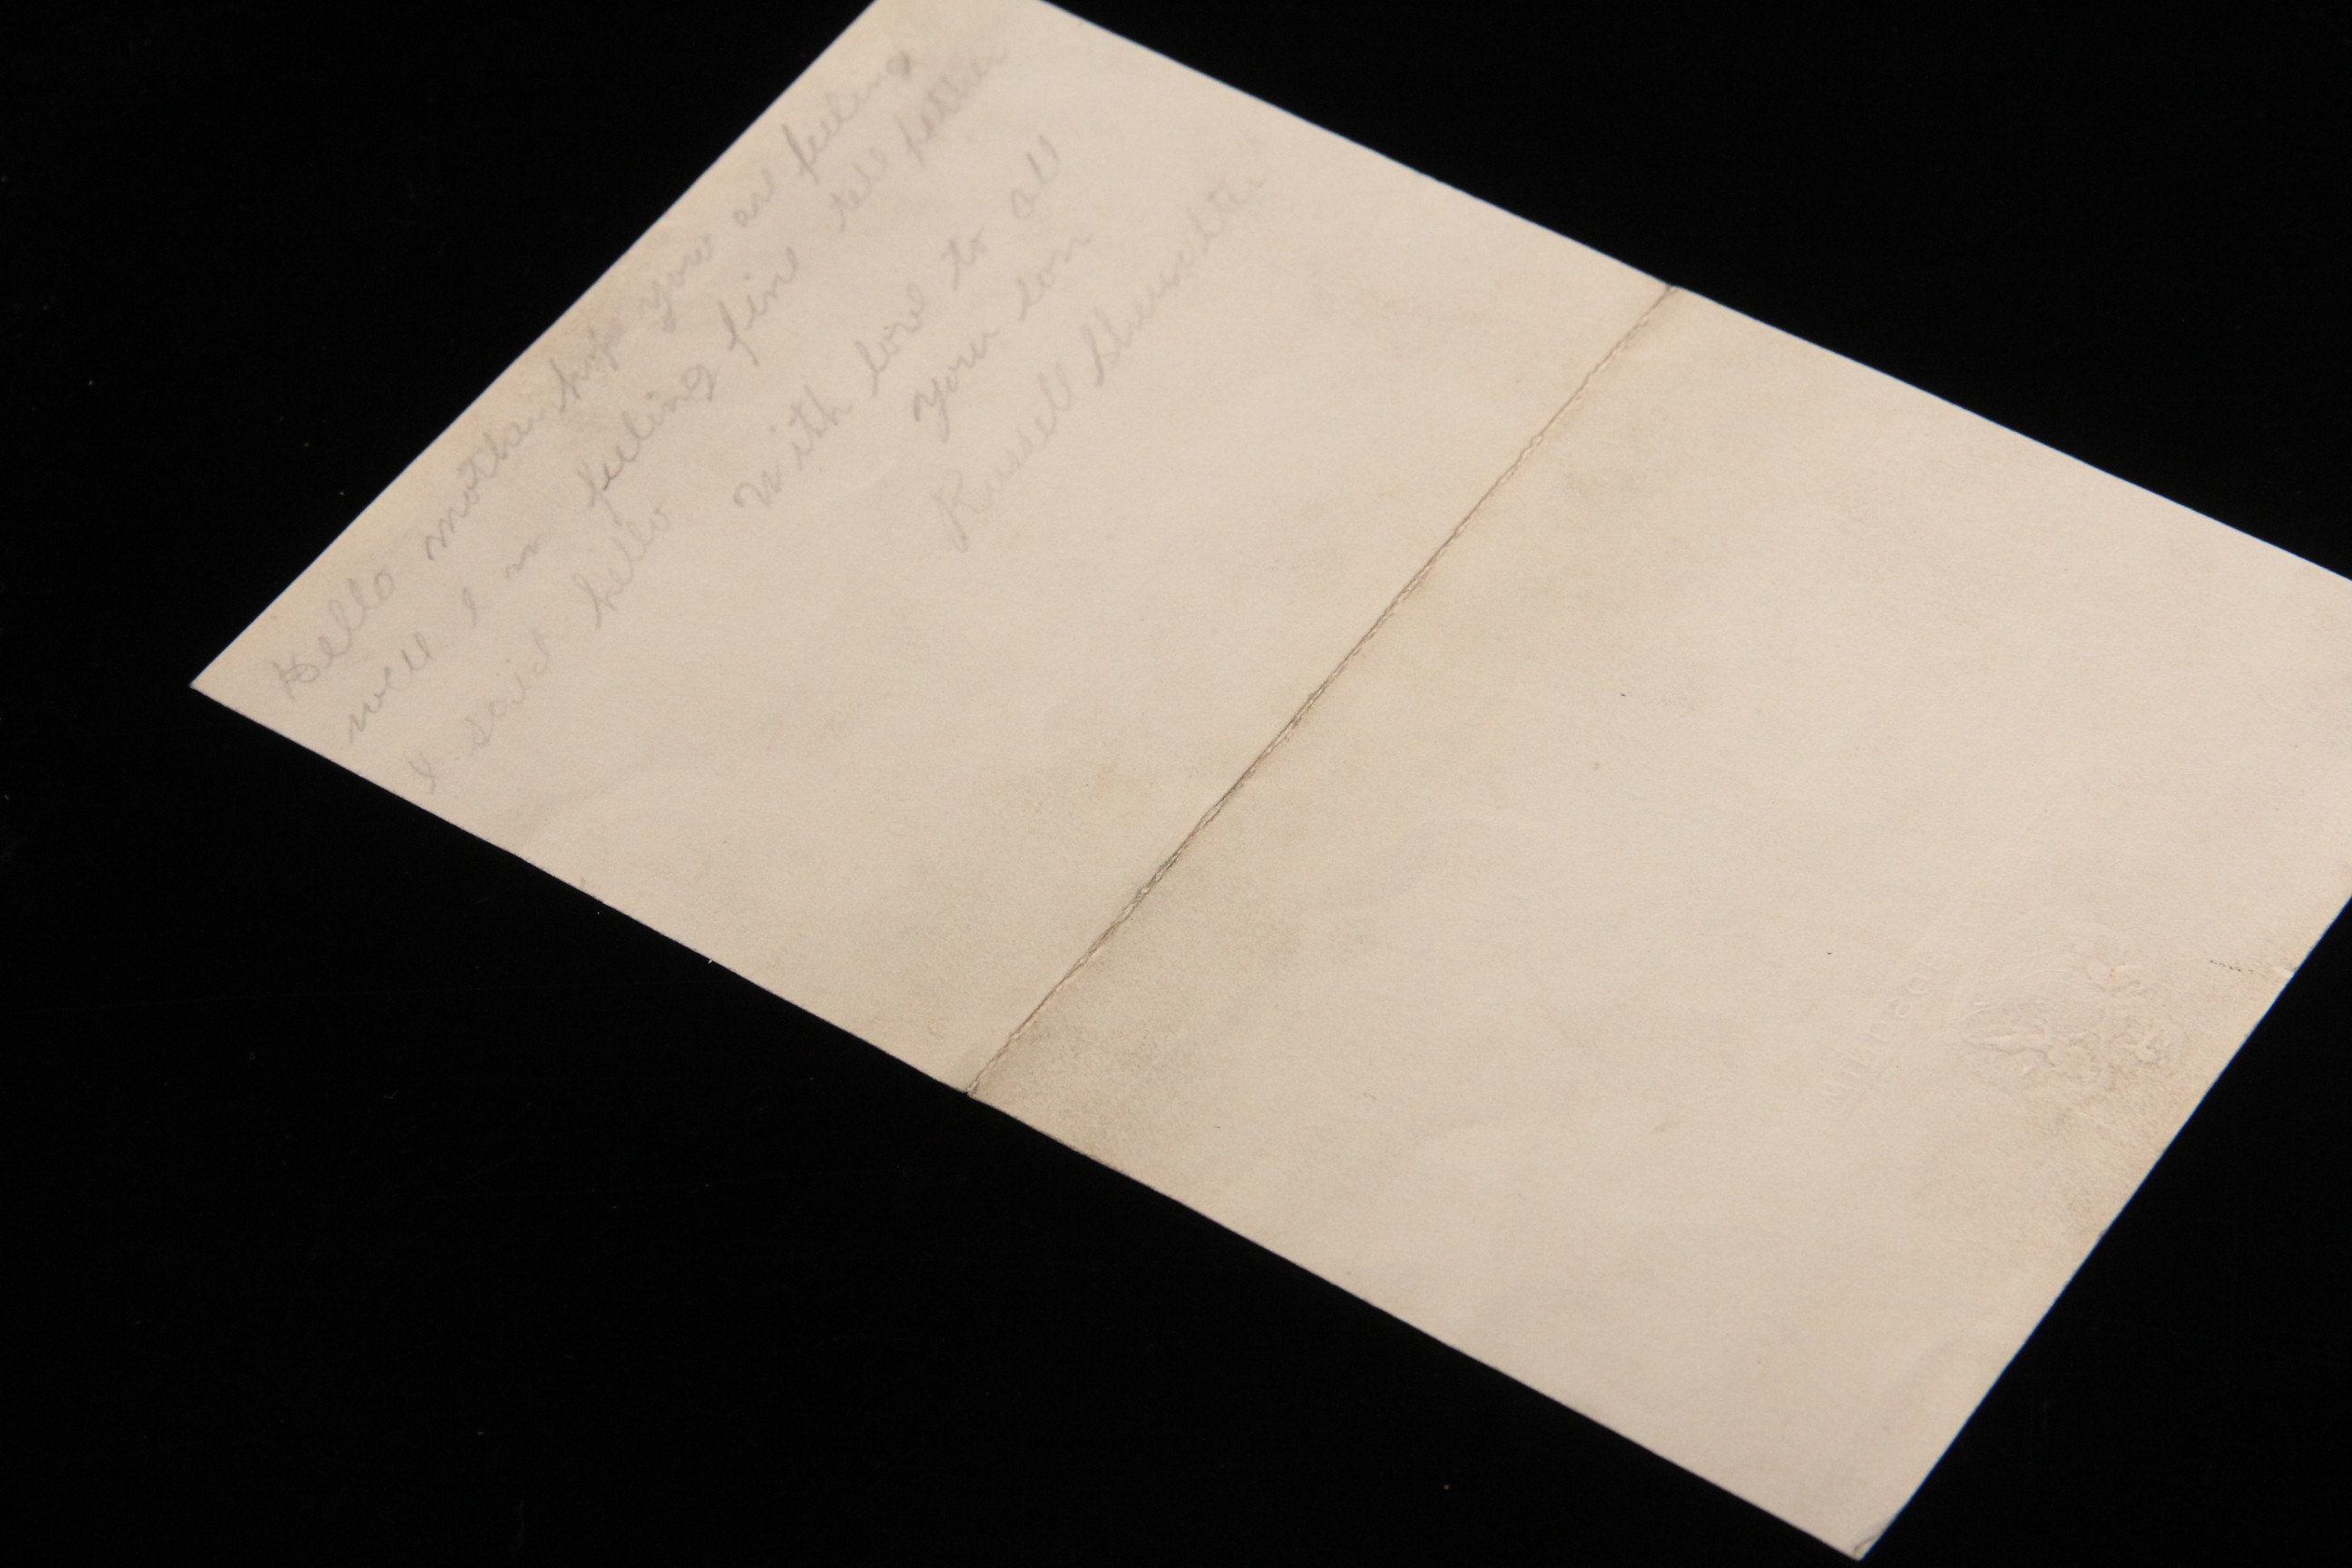 Hello mother hope you are feeling
well I m feeling fine tell father
I said hello
with love to all
your son
Russell